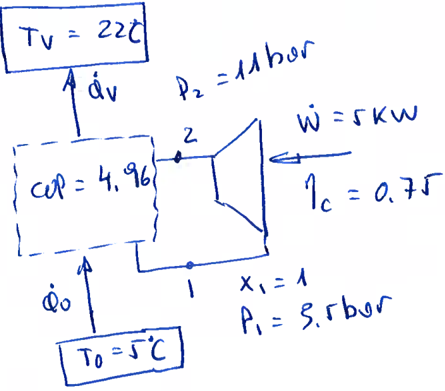 Tv = 22℃
Q̇v
P2 = 11bar
2
Ẇ = 5 KW
COP = 4.96
ηc = 0.75
Q̇0
1
x1 = 1
P1 = 3.5bar
T0 = 5°C